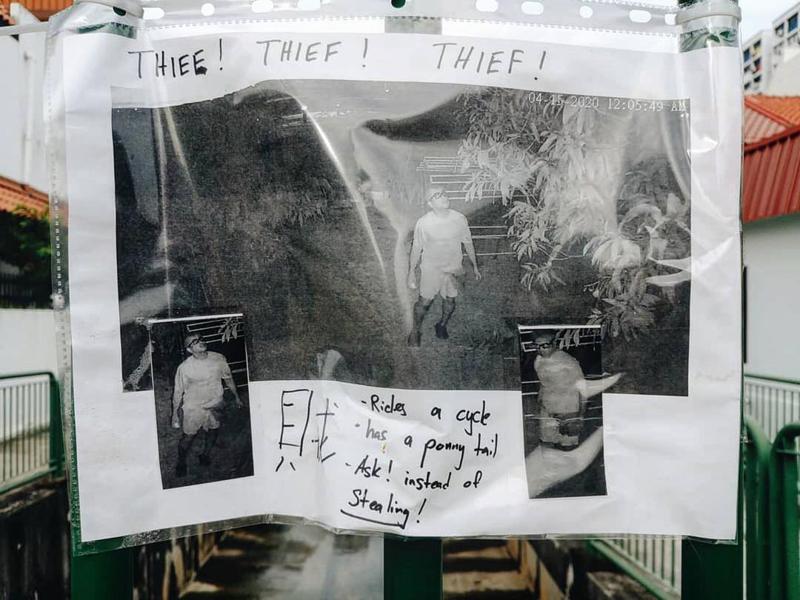 THIEF! THIEF! THIEF!
04-15-2020 12:05:49 AM
-Rides a cycle
-has a ponny tail
-Ask! instead of
Stealing!